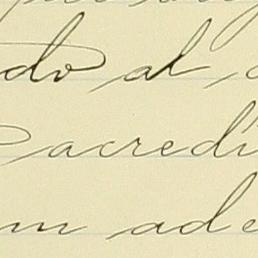 do al
acredi
m ade